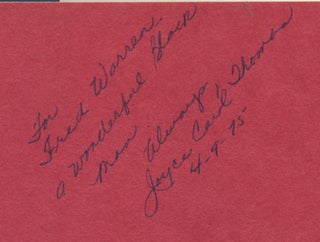 For
Fred Warren
a wonderful Black
Man
Always
Joyce Carol Thomas
4-9-75